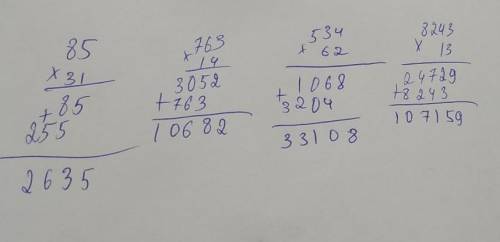 85
× 31
85
+
255
2635
763
× 14
3052
+ 763
10682
534
× 62
1068
+
3204
33108
8243
× 13
24729
+ 8243
107159